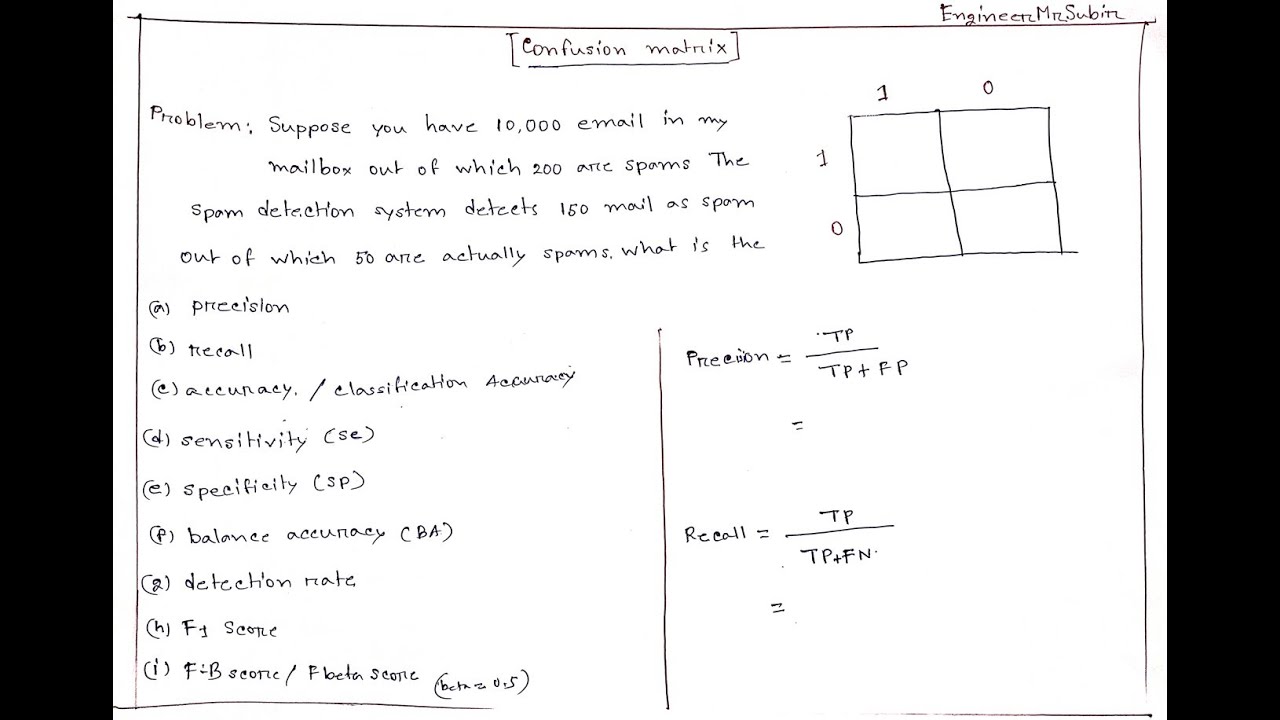 EngineerMrSubir
[Confusion matrix]
Problem: Suppose you have 10,000 email in my
mailbox out of which 200 are spams The
spam detection system detects 150 mail as spam
out of which 50 are actually spams. what is the
1 0
1
0
(a) precision
(b) recall
(c) accuracy. / classification Accuracy
(d) sensitivity (se)
(e) specificity (SP)
(f) balance accuracy (BA)
(g) detection rate
(h) F1 Score
(i) F-B score / Fbeta score (beta = 0.5)
Precision = TP
TP + FP
=
Recall = TP
TP+FN.
=